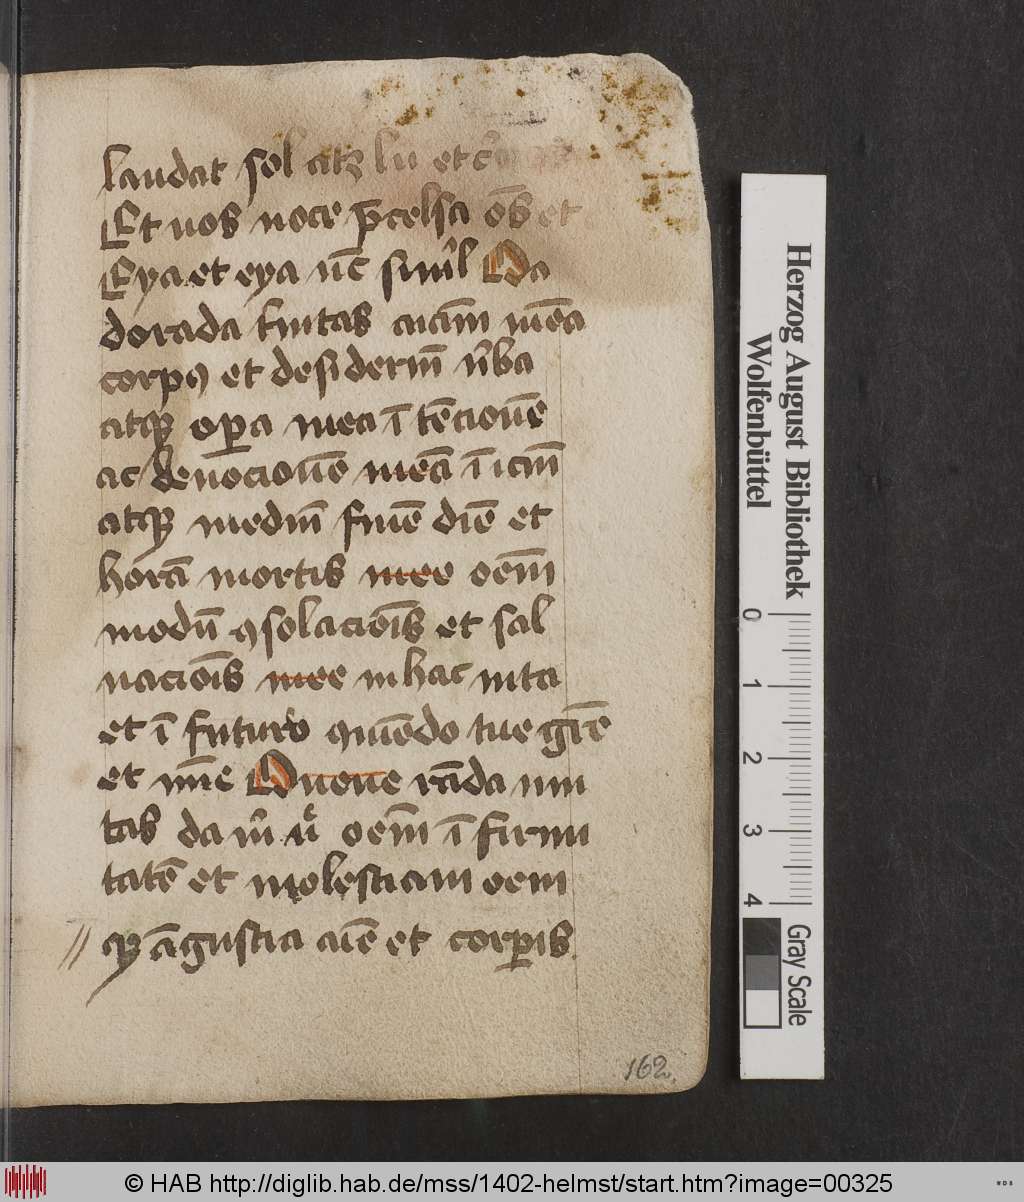 laudat sol atz lu et
Et uos uoce p̄celsa om̄s et
Eya et eya nūc simł O a
doranda trinitas aiam̄ meā
corpꝯ et desideriū v̄ba
atqꝫ oꝑa mea ītēcionē
ac deuocionē meā īiciū
atqꝫ mediū finē diē et
horā mortis mee oēm
modū ꝯsolacōis et sal
uacōis mee in hac uita
et ī futuro quēdo tue glīe
et īme O ueneranda trini
tas da oēm ī firmi
tatē et molestiam oem
qꝫ āgustia aīe et corꝑis
162.
Herzog August Bibliothek
Wolfenbüttel
0 1 2 3 4
Gray Scale
© HAB http://diglib.hab.de/mss/1402-helmst/start.htm?image=00325